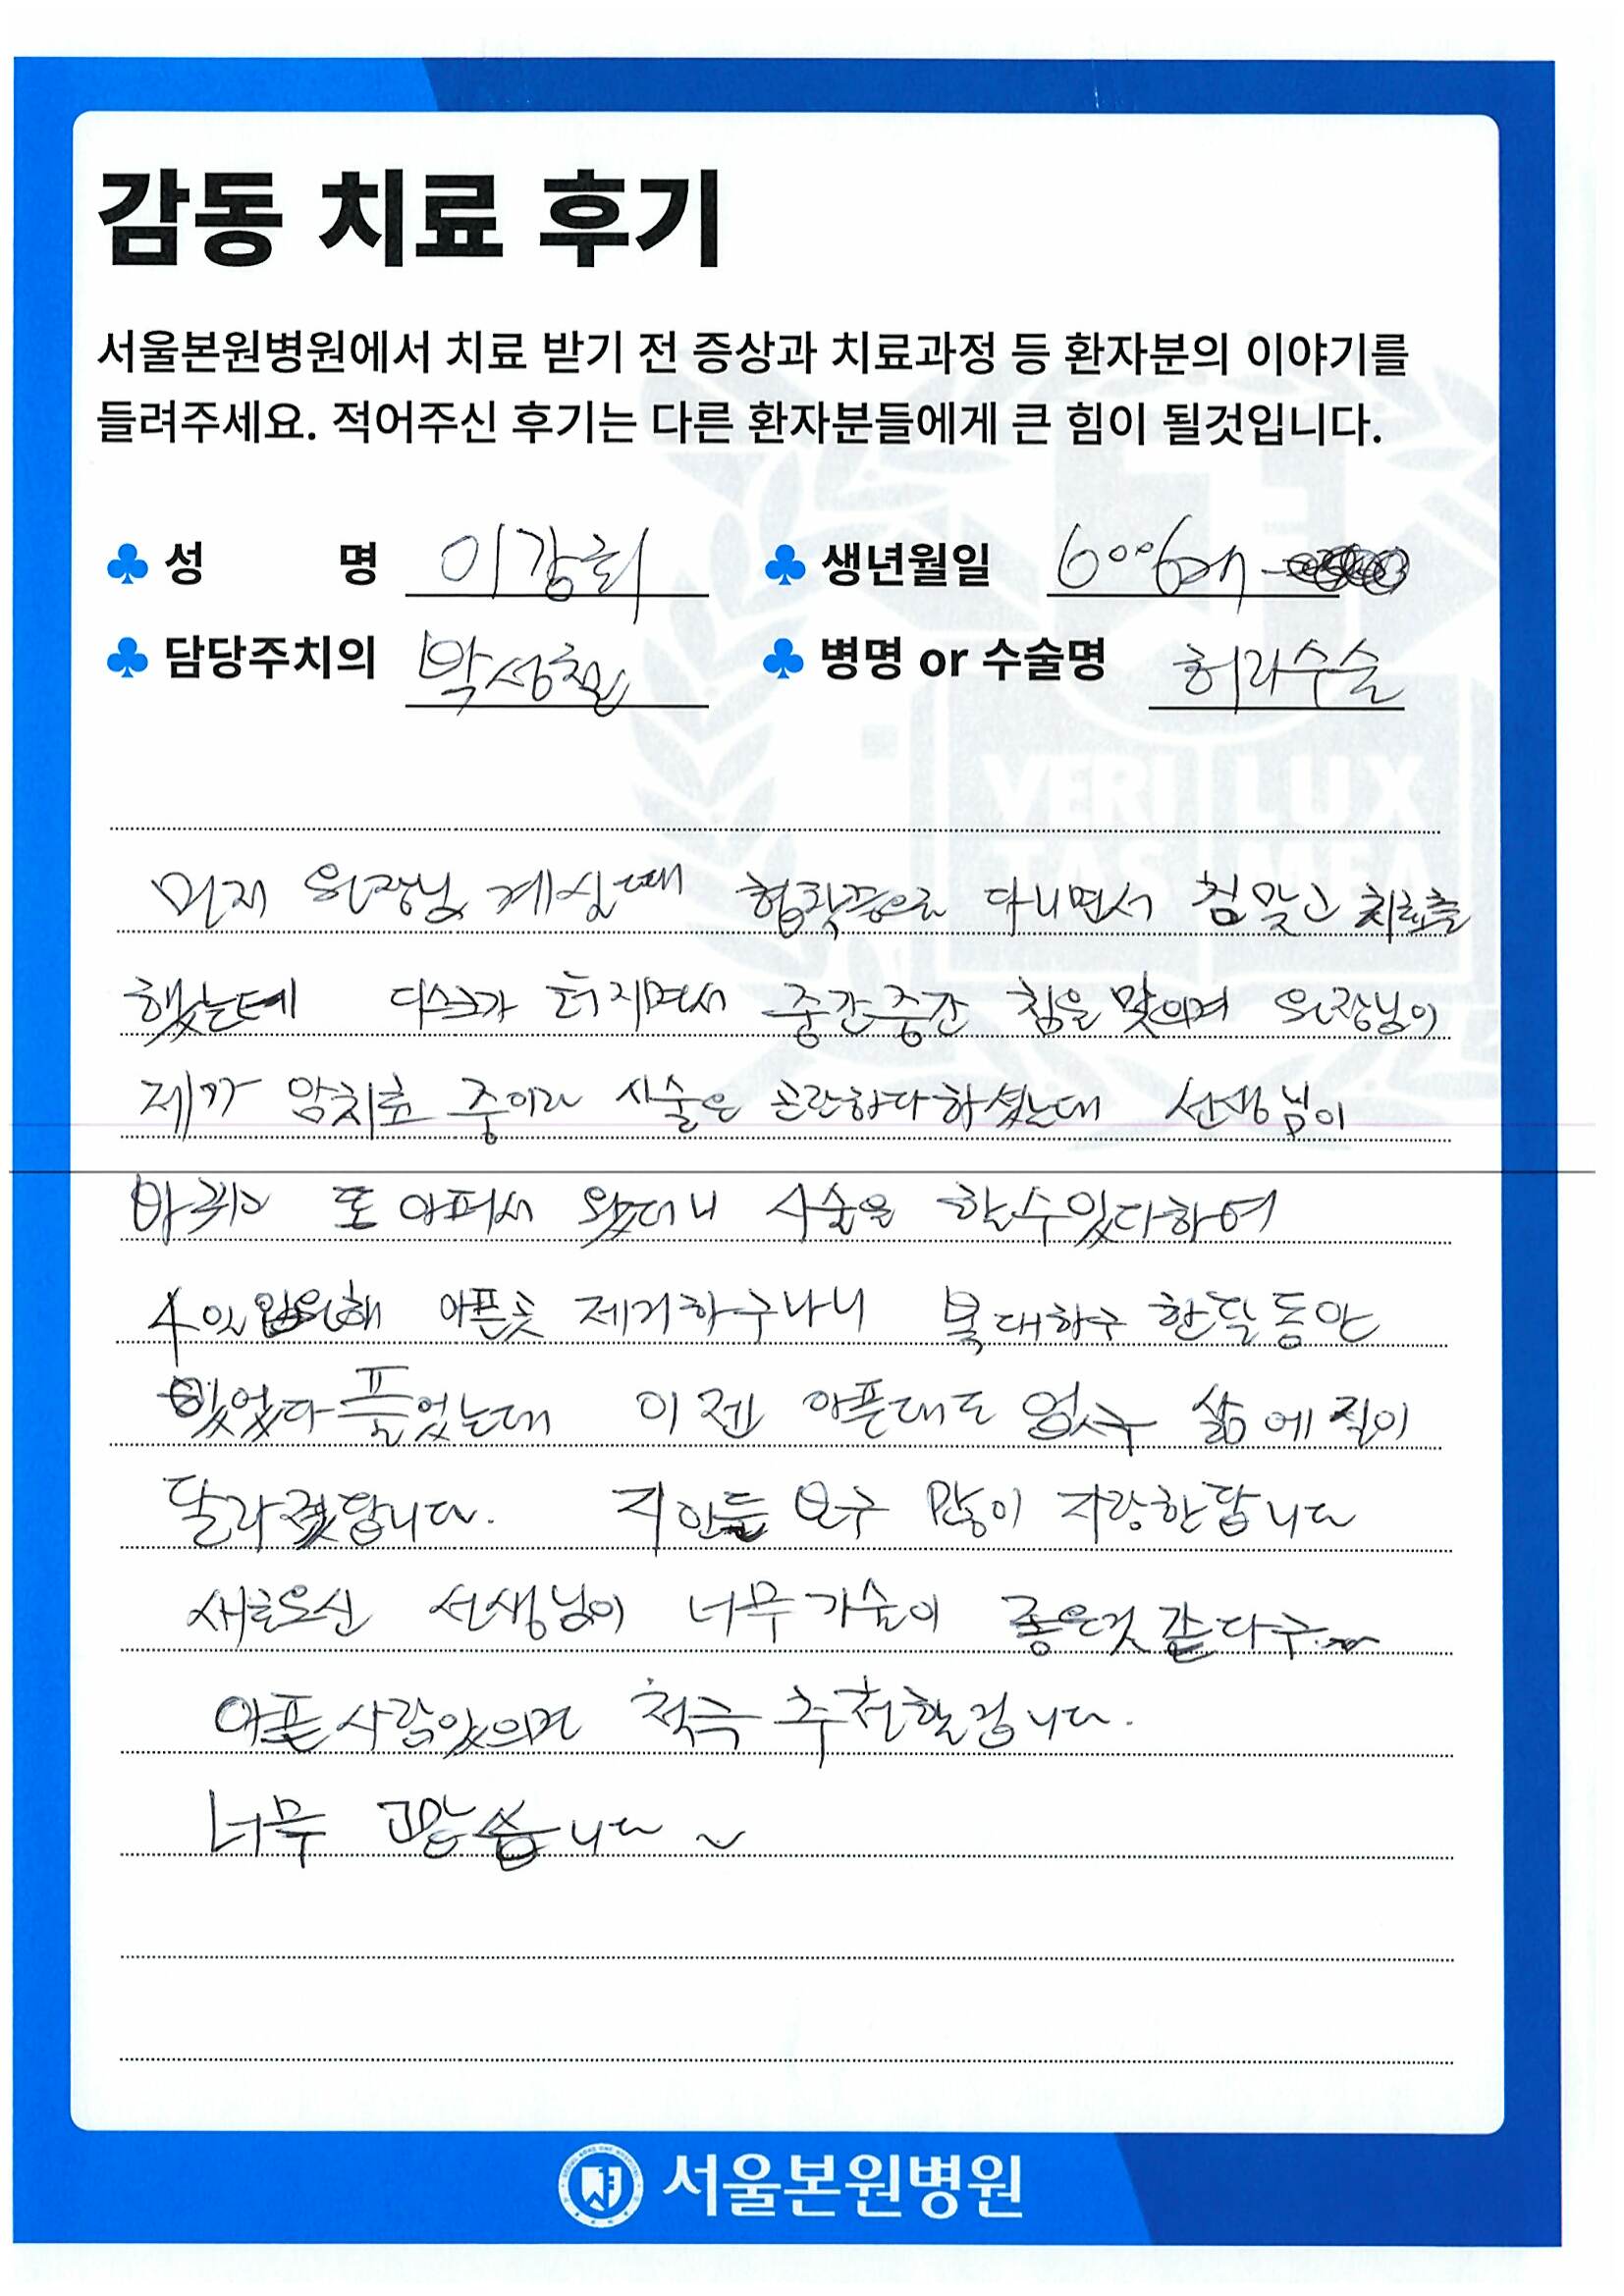 감동 치료 후기
서울본원병원에서 치료 받기 전 증상과 치료과정 등 환자분의 이야기를
들려주세요. 적어주신 후기는 다른 환자분들에게 큰 힘이 될것입니다.
성 명 이강희 생년월일
담당주치의 박성철 병명 or 수술명 허리수술
VERI LUX
TAS MEA
먼저 원장님 계실때 협착증으로 다니면서 침맞고 치료를
했는데 디스크가 터지면서 중간중간 침을 맞으며 원장님이
제가 암치료 중이라 시술은 곤란하다하셨는대 선생님이
바뀌고 또 아퍼서 왔더니 시술을 할수있다하여
4일 입원해 아픈곳 제거하구나니 복대하구 한달동안
있었다 풀었는데 이젠 아픈대도 없구 삶에 질이
달라졌답니다. 지인들 보구 많이 자랑한답니다
새로오신 선생님이 너무 기술이 좋은것 같다구~
아픈사람있으면 적극 추천할겁니다.
너무 고맙습니다 ~
서울본원병원